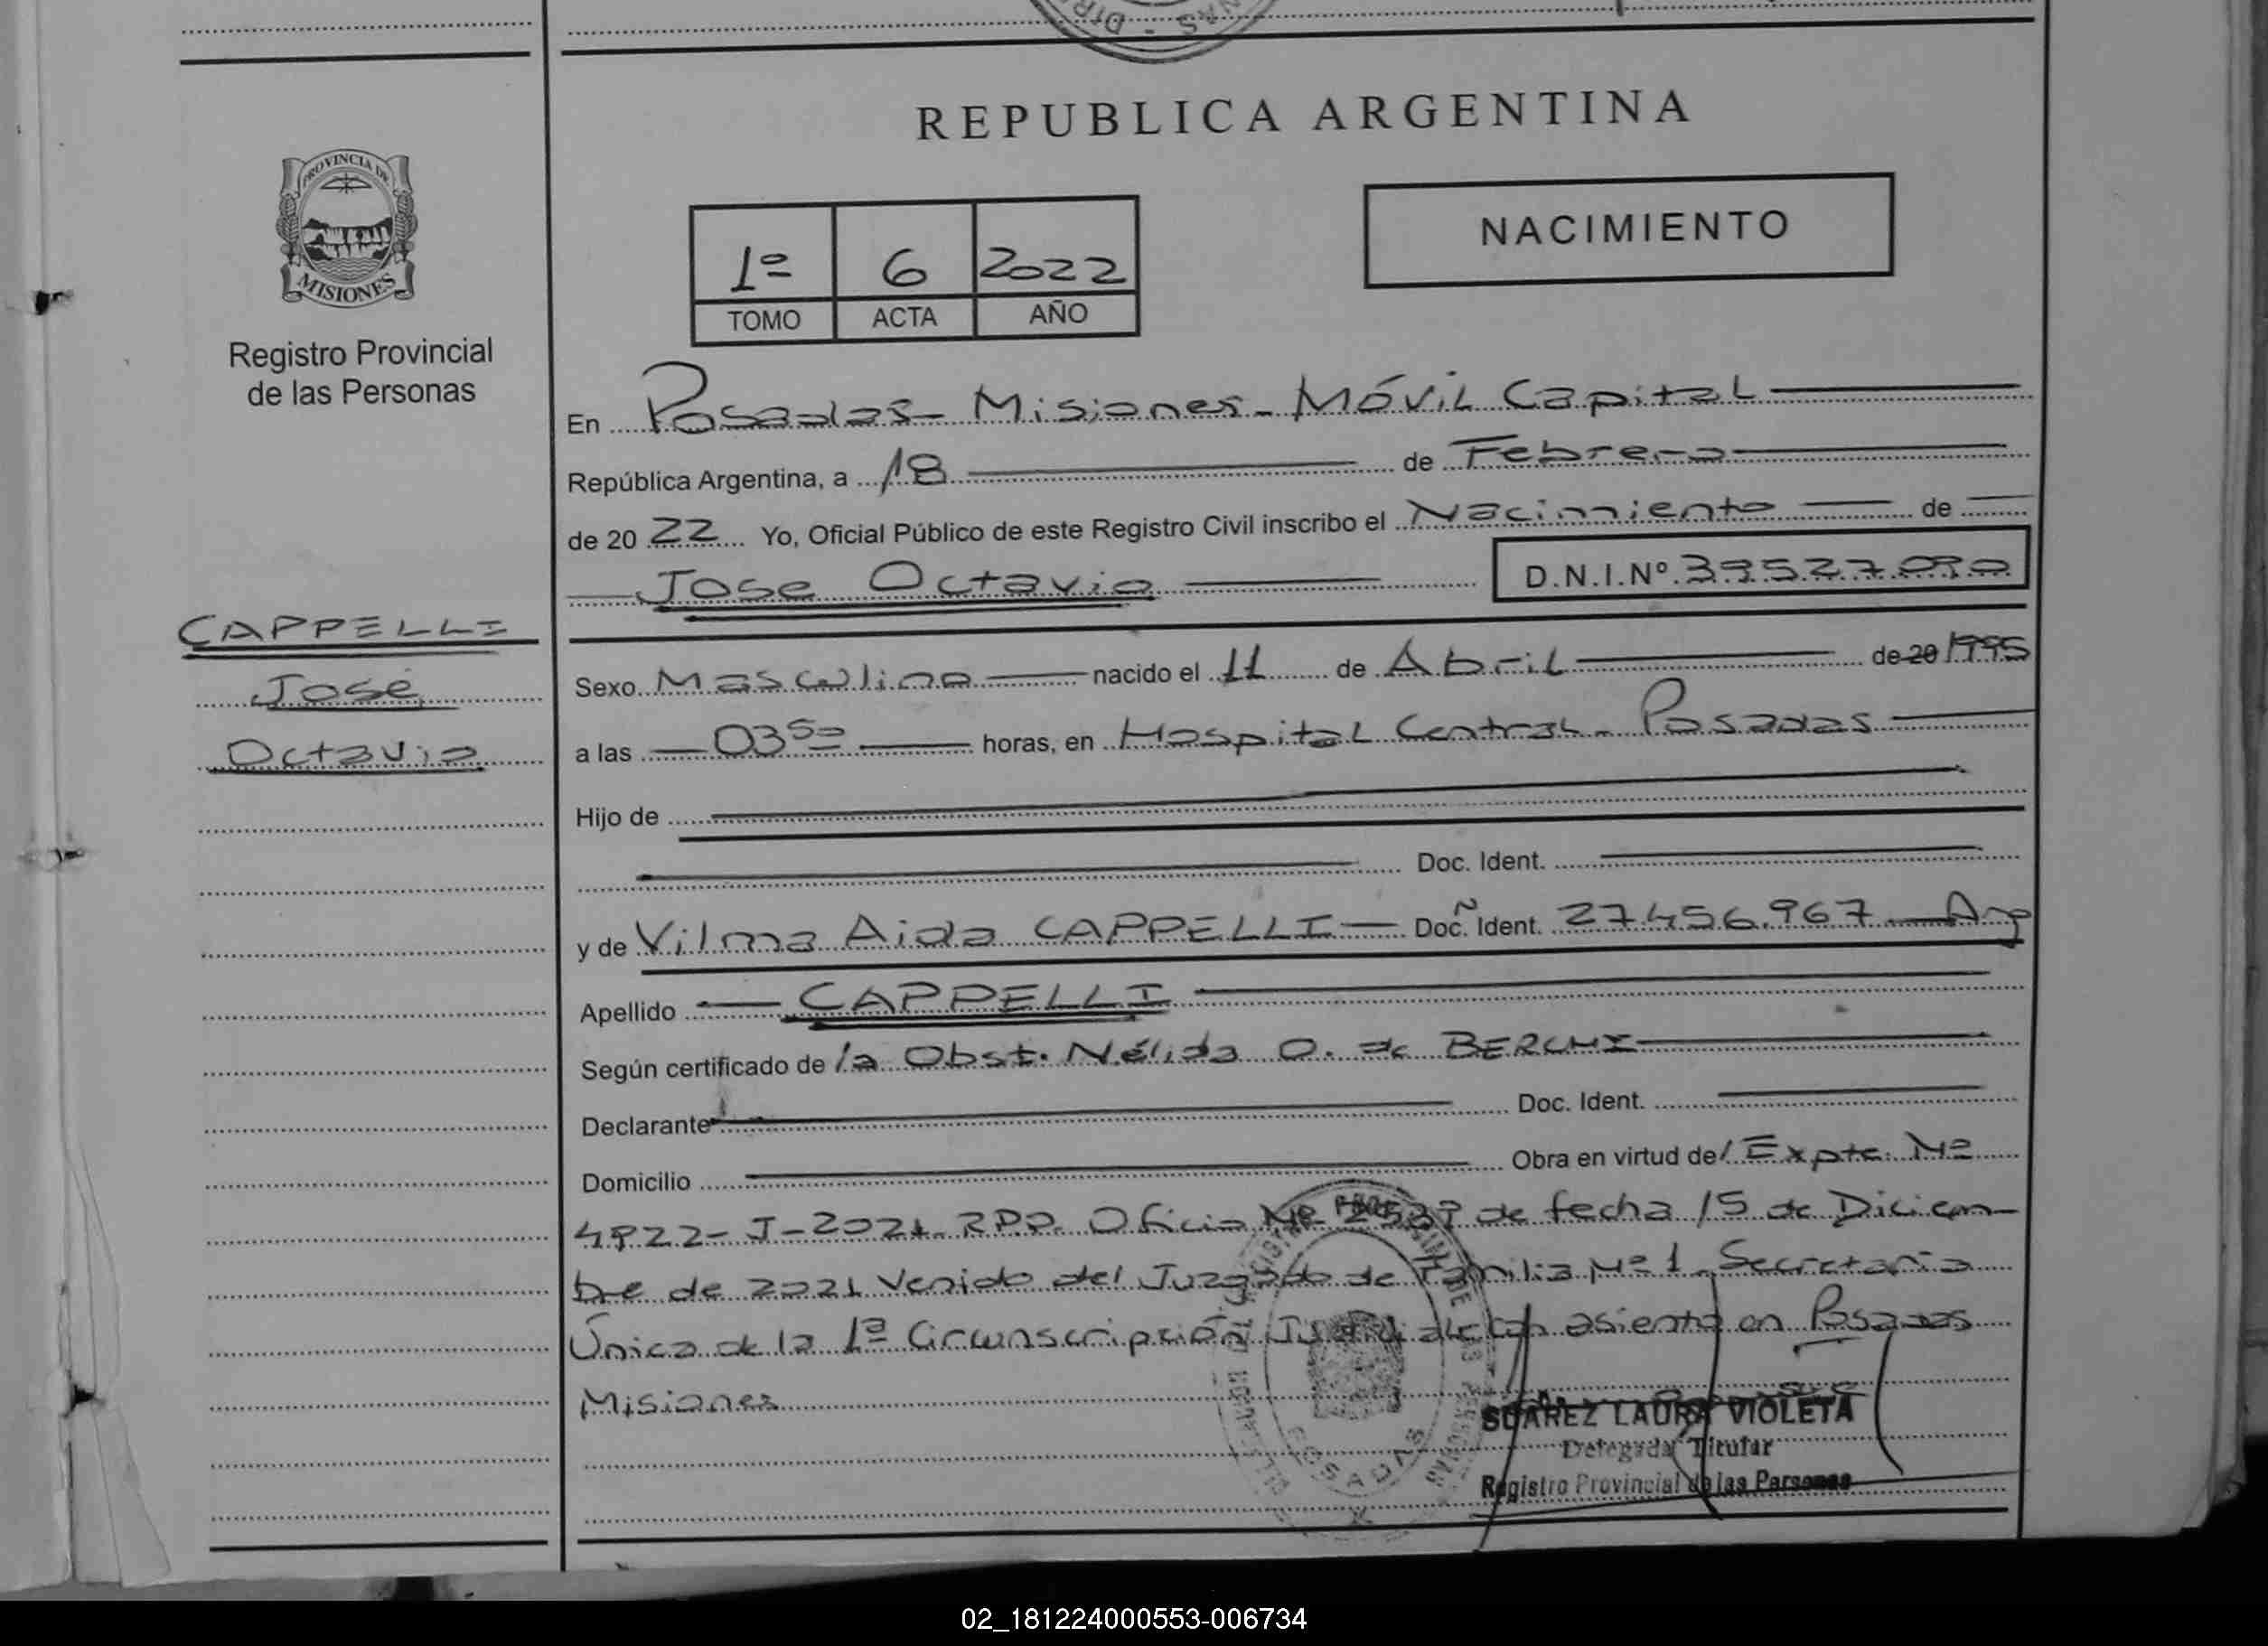 REPUBLICA ARGENTINA
PROVINCIA DE
MISIONES
Registro Provincial
de las Personas
1º 6 2022
TOMO ACTA AÑO
NACIMIENTO
En Posadas - Misiones - Móvil Capital
República Argentina, a 18 de Febrero
de 20 22 Yo, Oficial Público de este Registro Civil inscribo el Nacimiento de
Jose Octavio D.N.I.Nº 39527090
CAPPELLI
José
Octavio
Sexo Masculino nacido el 11 de Abril de 20 1995
a las 03 50 horas, en Hospital Central - Posadas
Hijo de
Doc. Ident.
y de Vilma Aida CAPPELLI Doc. Ident. 27.456.967 Arg
Apellido CAPPELLI
Según certificado de la Obst. Nélida O. de
Declarante Doc. Ident.
Domicilio Obra en virtud de Expte. Nº
J-2021- R.P.P. Oficio Nº de fecha 15 de Diciem-
bre de 2021 Venido del Juzgado de Familia Nº 1 - Secretaria
Única de la 1ª Circunscripción Judicial con asiento en Posadas
Misiones
POSADAS
SUAREZ LAURA VIOLETA
Delegada Titular
Registro Provincial de las Personas
02_181224000553-006734